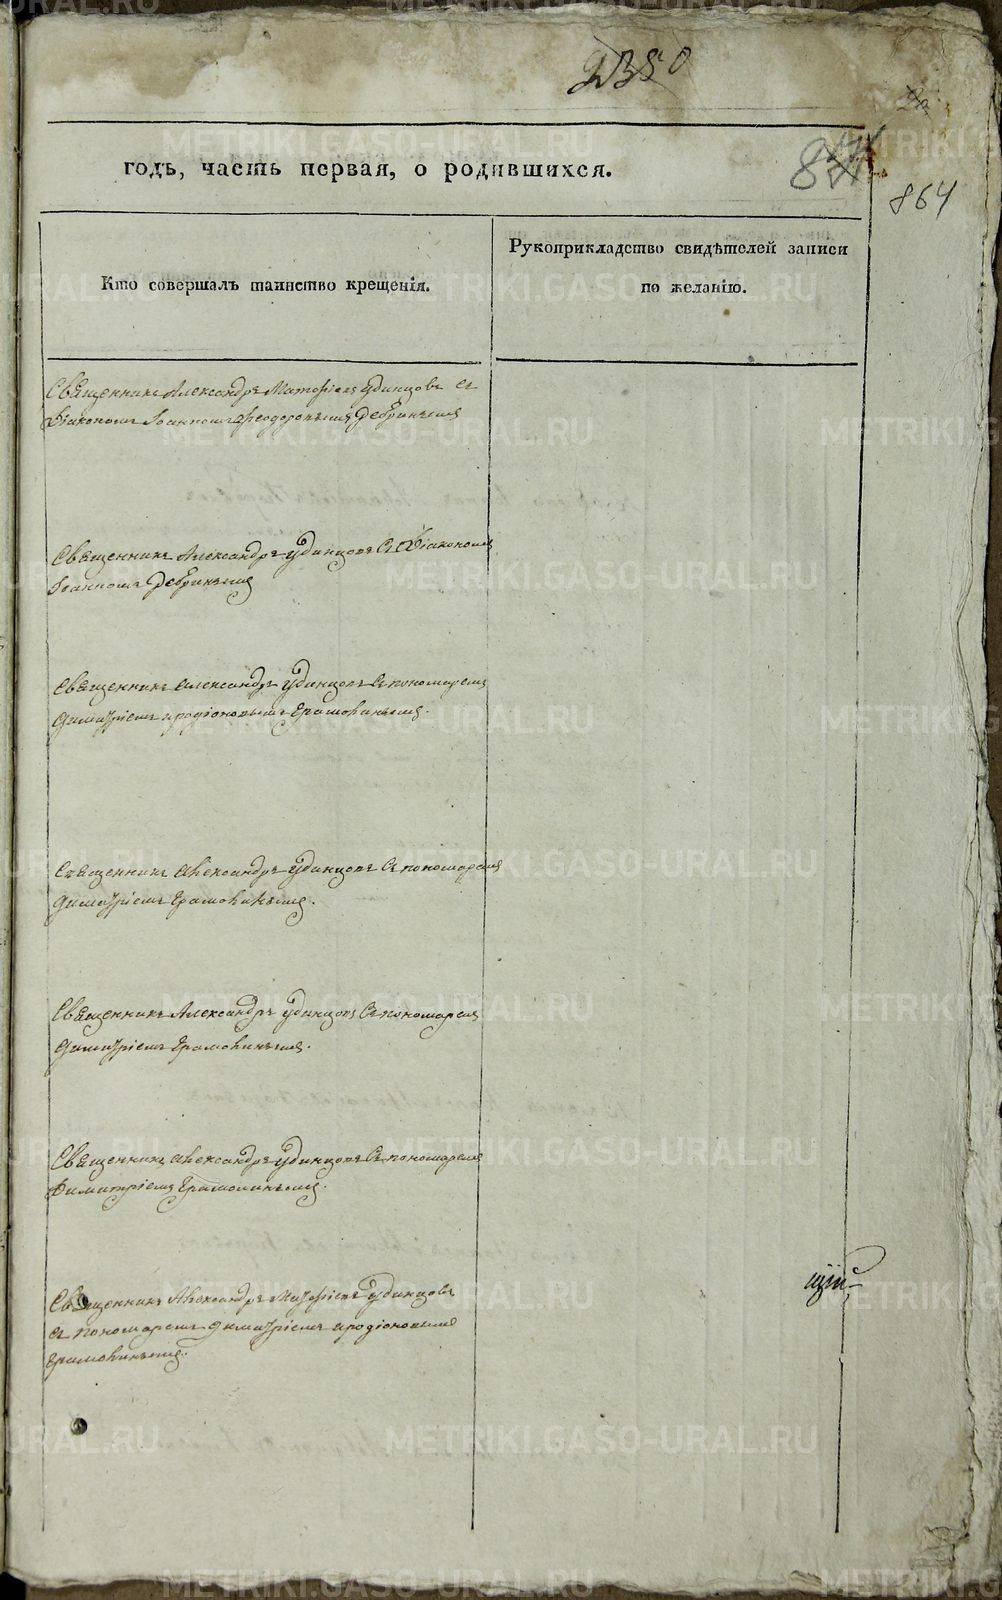 2350
864
годъ, часть первая, о родившихся.
Кто совершалъ таинство крещенія.
Рукоприкладство свидѣтелей записи
по желанію.
Священникъ Александръ Матѳіевъ Удинцовъ съ
Діакономъ Іоанномъ Феодоровымъ Дебринымъ
Священникъ Александръ Удинцовъ съ Діакономъ
Іоанномъ Дебринымъ
Священникъ Александръ Удинцовъ съ пономаремъ
Димитріемъ Иродіоновымъ Ермолинымъ.
Священникъ Александръ Удинцовъ съ пономаремъ
Димитріемъ Ермолинымъ.
Священникъ Александръ Удинцовъ съ пономаремъ
Димитріемъ Ермолинымъ.
Священникъ Александръ Удинцовъ съ пономаремъ
Димитріемъ Ермолинымъ.
Священникъ Александръ Матѳіевъ Удинцовъ
съ пономаремъ Димитріемъ Иродіоновымъ
Ермолинымъ.
щій
METRIKI.GASO-URAL.RU